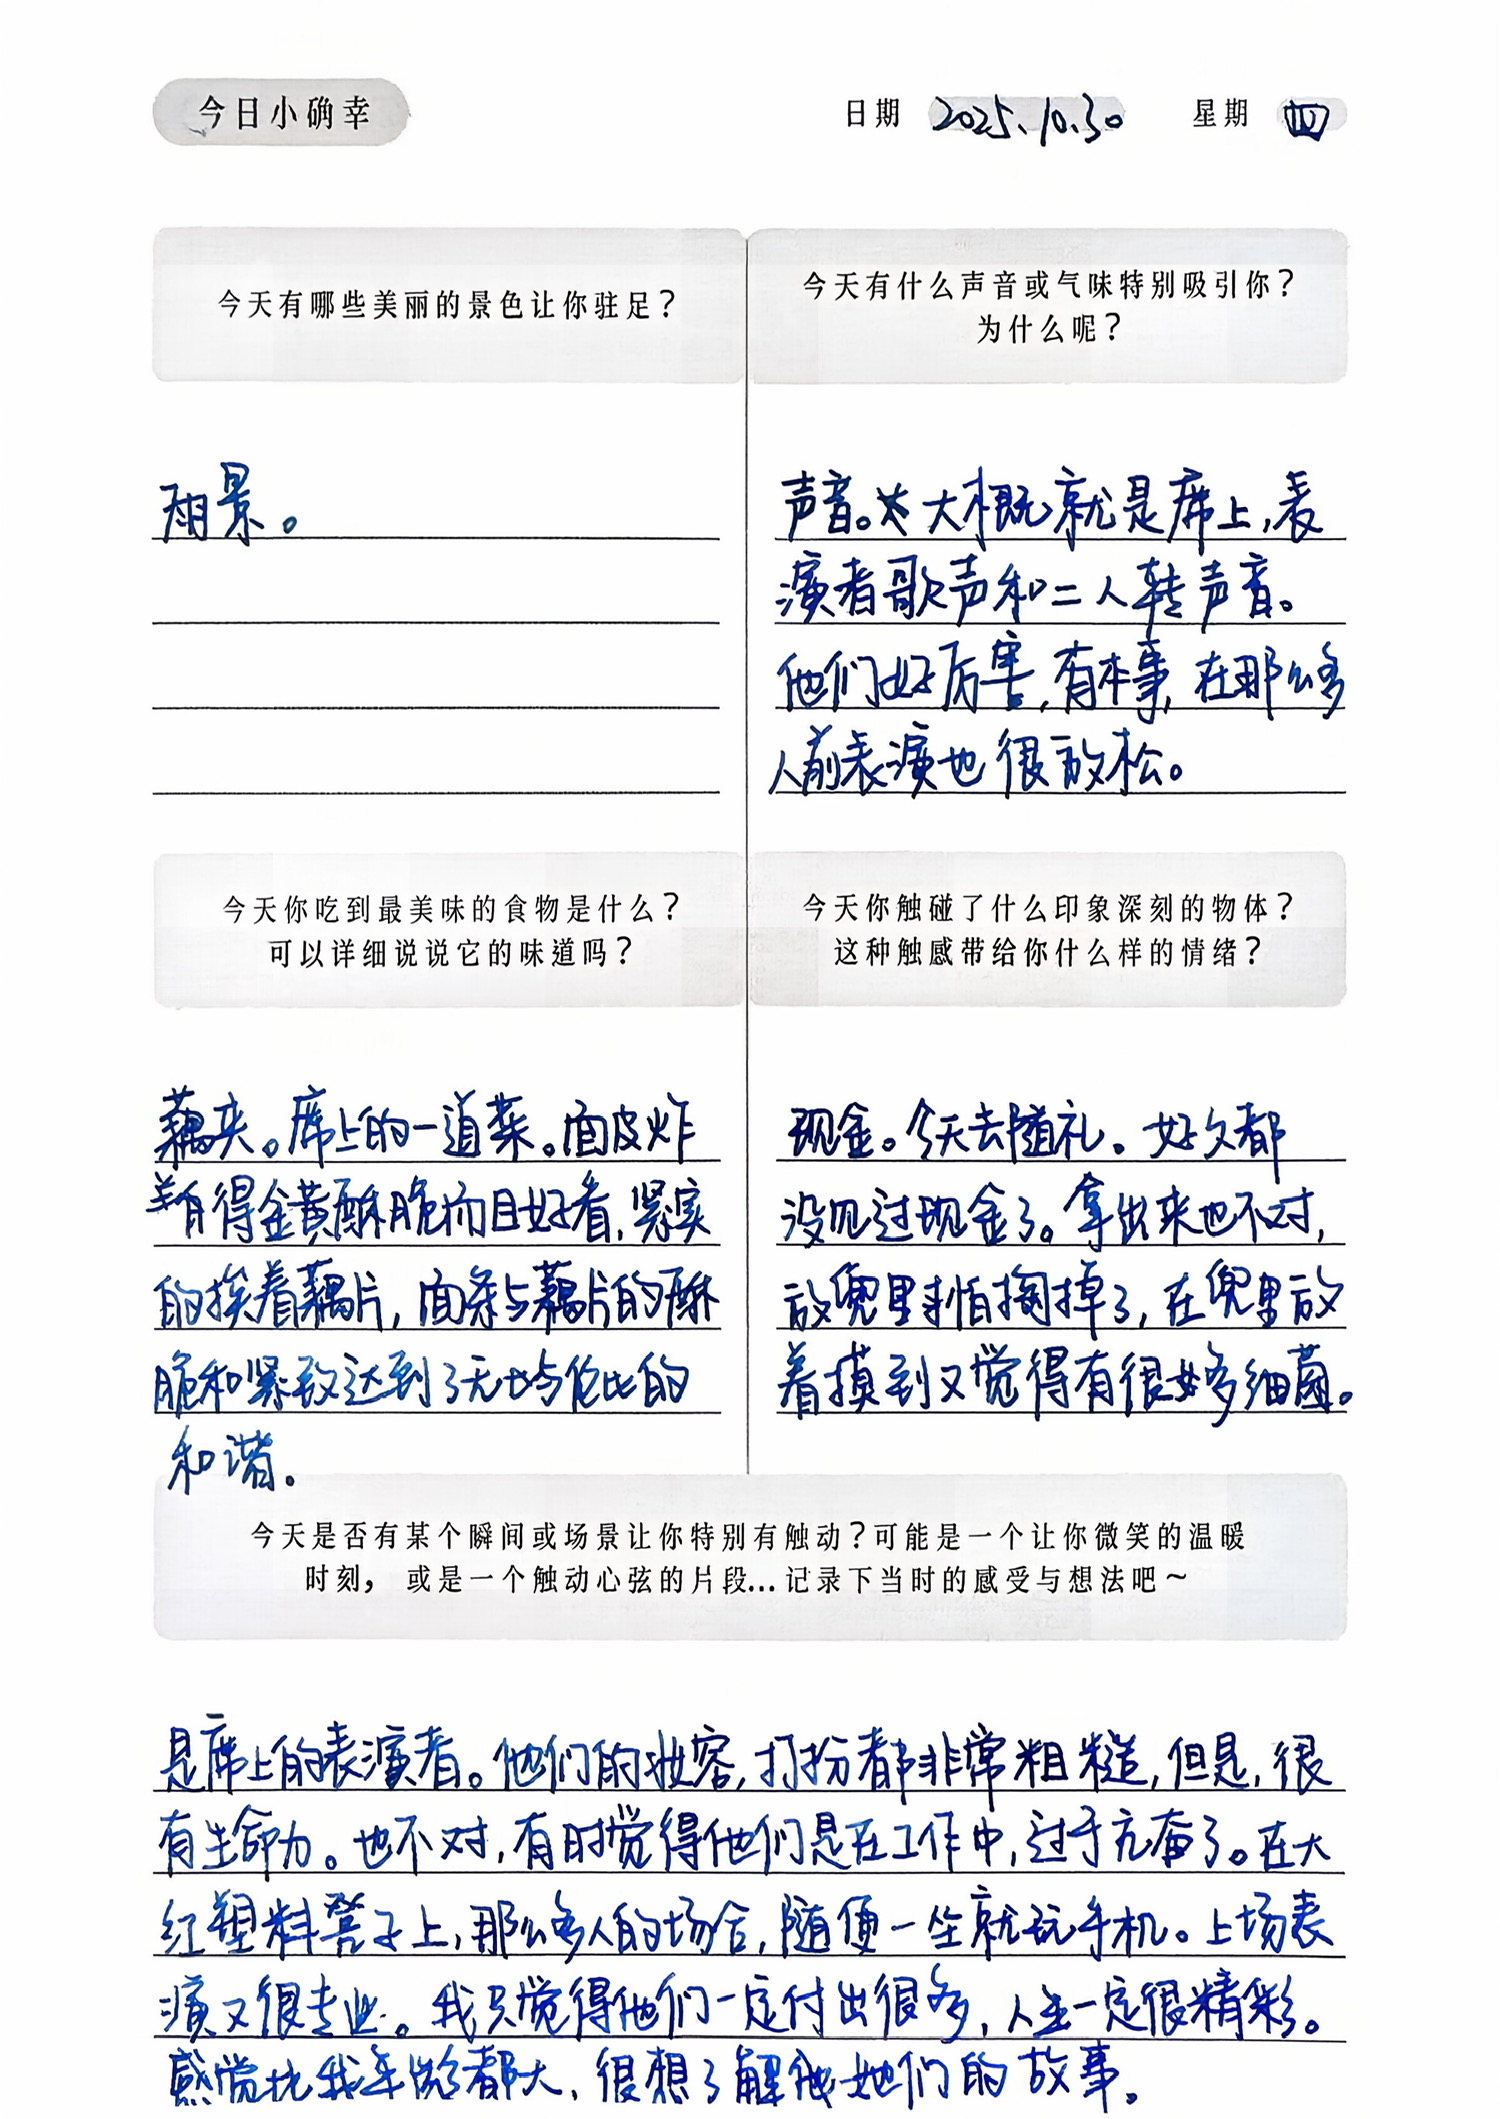 今日小确幸
日期 2025.10.30 星期 四
今天有哪些美丽的景色让你驻足？
雨景。
今天有什么声音或气味特别吸引你？
为什么呢？
声音。大概就是席上，表
演者歌声和二人转声音。
他们好厉害，有本事，在那么多
人前表演也很放松。
今天你吃到最美味的食物是什么？
可以详细说说它的味道吗？
藕夹。席上的一道菜。面皮炸
得金黄酥脆而且好看，紧实
的挨着藕片，面条与藕片的酥
脆和紧致达到了无与伦比的
和谐。
今天你触碰了什么印象深刻的物体？
这种触感带给你什么样的情绪？
现金。今天去随礼。好久都
没见过现金了。拿出来也不对，
放兜里怕掏掉了，在兜里放
着摸到又觉得有很多细菌。
今天是否有某个瞬间或场景让你特别有触动？可能是一个让你微笑的温暖
时刻，或是一个触动心弦的片段...记录下当时的感受与想法吧～
是席上的表演者。他们的妆容，打扮都非常粗糙，但是，很
有生命力。也不对，有时觉得他们是在工作中，过于亢奋了。在大
红塑料凳子上，那么多人的场合，随便一坐就玩手机。上场表
演又很专业。我只觉得他们一定付出很多，人生一定很精彩。
感觉比我年龄都大，很想了解他她们的故事。